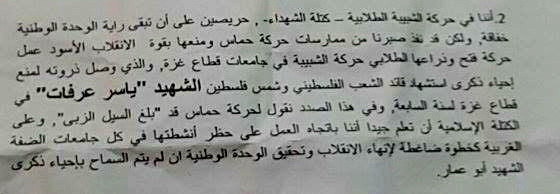 2. أننا في حركة الشبيبة الطلابية – كتلة الشهداء-, حريصين على أن تبقى راية الوحدة الوطنية
خفاقة, ولكن قد نفذ صبرنا من ممارسات حركة حماس ومنعها بقوة الانقلاب الأسود عمل
حركة فتح وذراعها الطلابي حركة الشبيبة في جامعات قطاع غزة, والذي وصل ذروته لمنع
إحياء ذكرى استشهاد قائد الشعب الفلسطيني وشمس فلسطين الشهيد "ياسر عرفات" في
قطاع غزة لسنة السابعة, وفي هذا الصدد نقول لحركة حماس قد "بلغ السيل الزبى", وعلى
الكتلة الإسلامية أن تعلم جيدا أننا باتجاه العمل على حظر أنشطتها في كل جامعات الضفة
الغربية كخطوة ضاغطة لإنهاء الانقلاب وتحقيق الوحدة الوطنية ان لم يتم السماح بإحياء ذكرى
الشهيد أبو عمار.